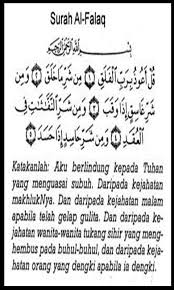 Surah Al-Falaq
بِسْمِ اللَّهِ الرَّحْمَٰنِ الرَّحِيمِ
قُلْ أَعُوذُ بِرَبِّ الْفَلَقِ ۝١ مِن شَرِّ مَا خَلَقَ ۝٢ وَمِن
شَرِّ غَاسِقٍ إِذَا وَقَبَ ۝٣ وَمِن شَرِّ النَّفَّاثَاتِ فِي
الْعُقَدِ ۝٤ وَمِن شَرِّ حَاسِدٍ إِذَا حَسَدَ ۝٥
Katakanlah: Aku berlindung kepada Tuhan
yang menguasai subuh. Daripada kejahatan
makhlukNya. Dan daripada kejahatan malam
apabila telah gelap gulita. Dan daripada ke-
jahatan wanita-wanita tukang sihir yang meng-
hembus pada buhul-buhul, dan daripada keja-
hatan orang yang dengki apabila ia dengki.